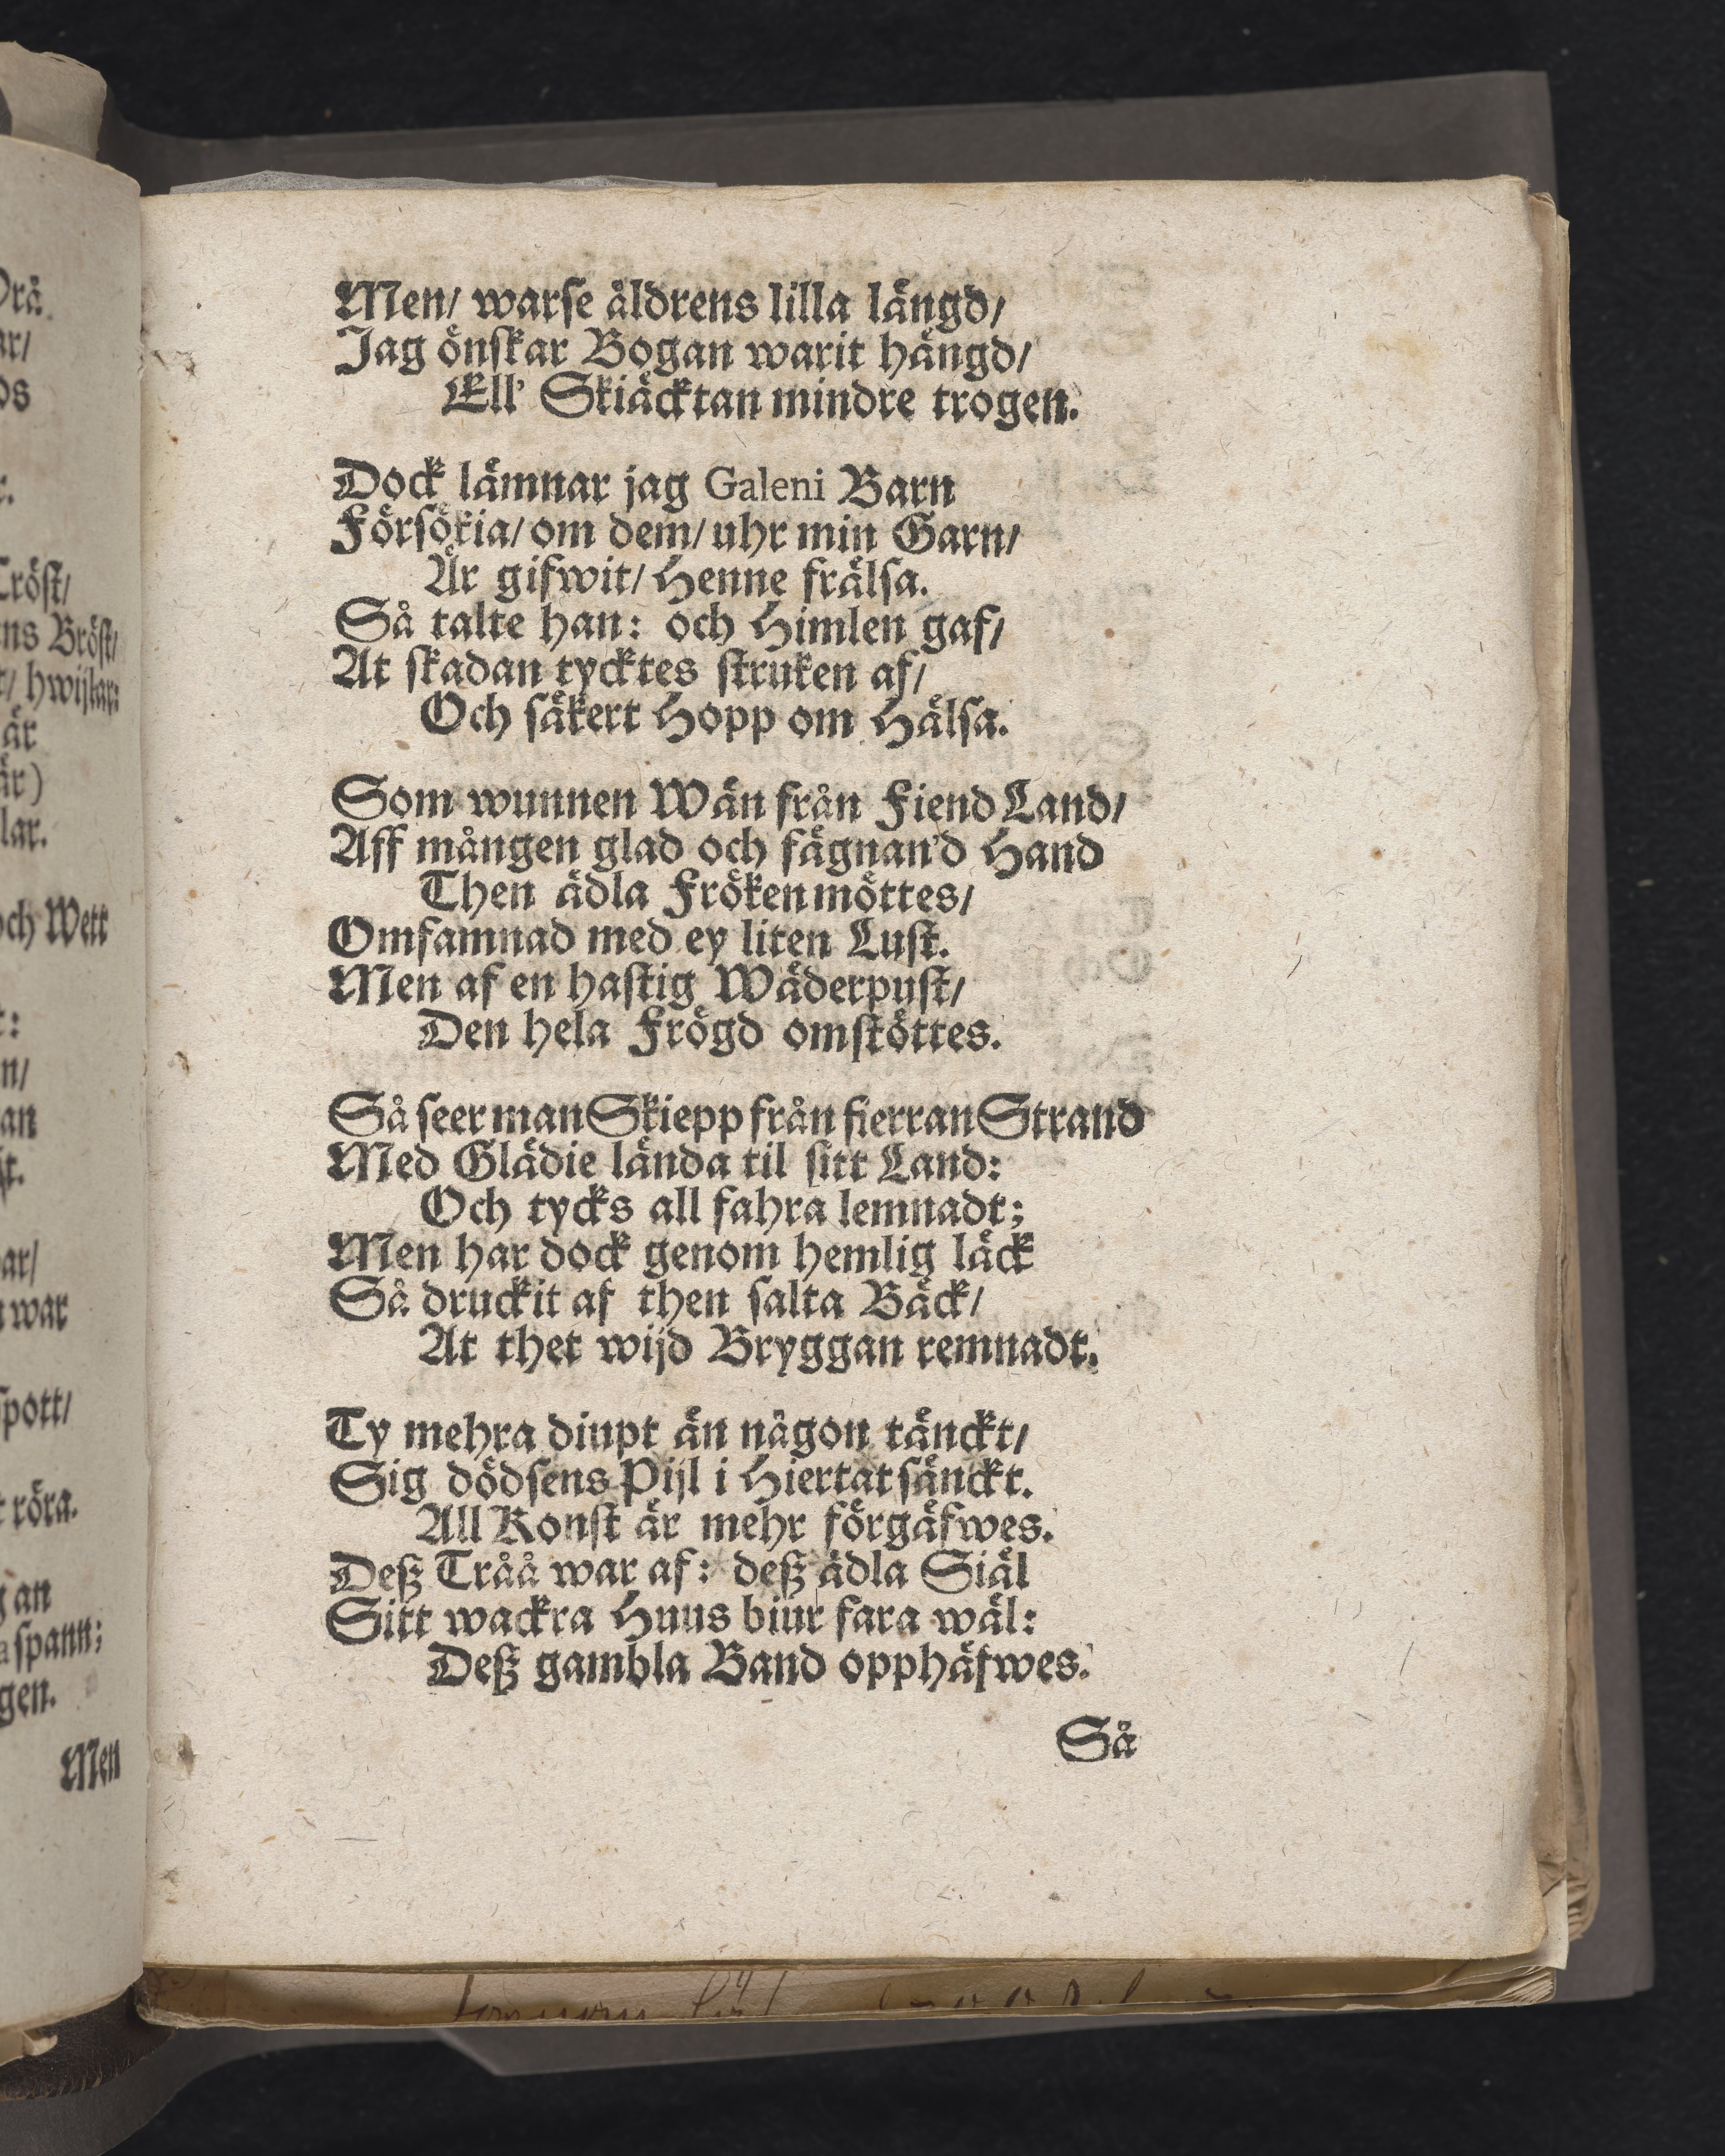 Men/ warse åldrens lilla längd/
Jag önskar Bogan warit hängd/
Ell' Skiäcktan mindre trogen.
Dock lämnar jag Galeni Barn
Försökia/ om dem/ uhr min Garn/
Är gifwit/ Henne frälsa.
Så talte han: och Himlen gaf/
At skadan tycktes struken af/
Och säkert Hopp om Hälsa.
Som wunnen Wän från Fiend Land/
Aff mången glad och fägnan'd Hand
Then ädla Fröken möttes/
Omfamnad med ey liten Lust.
Men af en hastig Wäderpust/
Den hela Frögd omstöttes.
Så seer man Skiepp från fierran Strand
Med Glädie lända til sitt Land:
Och tycks all fahra lemnadt;
Men har dock genom hemlig läck
Så druckit af then salta Bäck/
At thet wijd Bryggan remnadt.
Ty mehra diupt än någon tänckt/
Sig dödsens Pijl i Hiertat sänckt.
All Konst är mehr förgäfwes.
Deß Tråå war af: deß ädla Siäl
Sitt wackra Huus biur fara wäl:
Deß gambla Band opphäfwes.
Så
ns Bröst/
och Wett
war
spott/
röra.
an
spann;
Men